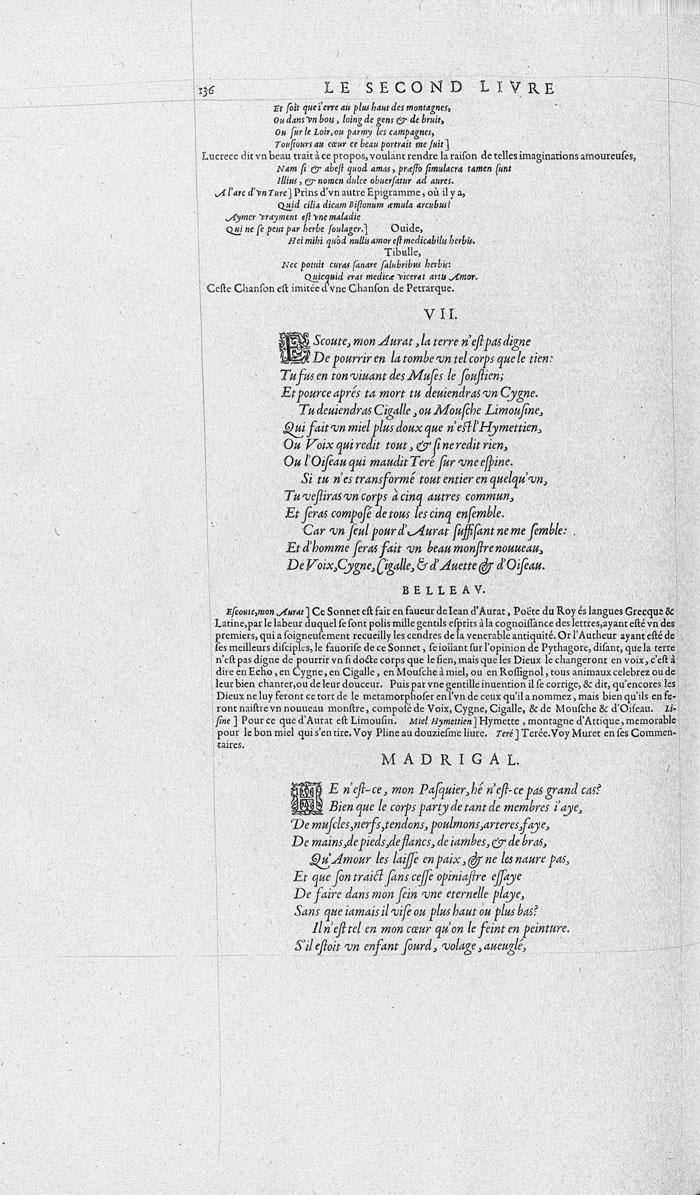 136 LE SECOND LIVRE
Et ſoit que i'erre au plus haut des montagnes,
Ou dans vn bois, loing de gens & de bruit,
Ou ſur le Loir, ou parmy les campagnes,
Touſiours au cœur ce beau portrait me ſuit]
Lucrece dit vn beau trait à ce propos, voulant rendre la raiſon de telles imaginations amoureuſes,
Nam ſi & abeſt quod amas, præſto ſimulacra tamen ſunt
Illius, & nomen dulce obuerſatur ad aures.
A l'arc d'vn Turc] Prins d'vn autre Epigramme, où il y a,
Quid cilia dicam Biſtonum æmula arcubus?
Aymer vrayment eſt vne maladie
Qui ne ſe peut par herbe ſoulager.] Ouide,
Hei mihi quòd nullis amor eſt medicabilis herbis.
Tibulle,
Nec potuit curas ſanare ſalubribus herbis:
Quicquid erat medicæ vicerat artis Amor.
Ceſte Chanſon eſt imitée d'vne Chanſon de Petrarque.
VII.
EScoute, mon Aurat, la terre n'eſt pas digne
De pourrir en la tombe vn tel corps que le tien:
Tu fus en ton viuant des Muſes le ſouſtien;
Et pource aprés ta mort tu deuiendras vn Cygne.
Tu deuiendras Cigalle, ou Mouſche Limouſine,
Qui fait vn miel plus doux que n'eſt l'Hymettien,
Ou Voix qui redit tout, & ſi ne redit rien,
Ou l'Oiſeau qui maudit Teré ſur vne eſpine.
Si tu n'es transformé tout entier en quelqu'vn,
Tu veſtiras vn corps à cinq autres commun,
Et ſeras compoſé de tous les cinq enſemble.
Car vn ſeul pour d'Aurat ſuffiſant ne me ſemble:
Et d'homme ſeras fait vn beau monſtre nouueau,
De Voix, Cygne, Cigalle, & d'Auette & d'Oiſeau.
BELLEAV.
Eſcoute, mon Aurat] Ce Sonnet eſt fait en faueur de Iean d'Aurat, Poëte du Roy és langues Grecque &
Latine, par le labeur duquel ſe ſont polis mille gentils eſprits à la cognoiſſance des lettres, ayant eſté vn des
premiers, qui a ſoigneuſement recueilly les cendres de la venerable antiquité. Or l'Autheur ayant eſté de
ſes meilleurs diſciples, le fauoriſe de ce Sonnet, ſe ioüant ſur l'opinion de Pythagore, diſant, que la terre
n'eſt pas digne de pourrir vn ſi docte corps que le ſien, mais que les Dieux le changeront en voix, c'eſt à
dire en Echo, en Cygne, en Cigalle, en Mouſche à miel, ou en Roſſignol, tous animaux celebrez ou de
leur bien chanter, ou de leur douceur. Puis par vne gentille inuention il ſe corrige, & dit, qu'encores les
Dieux ne luy feront ce tort de le metamorphoſer en l'vn de ceux qu'il a nommez, mais bien qu'ils en fe-
ront naiſtre vn nouueau monſtre, compoſé de Voix, Cygne, Cigalle, & de Mouſche & d'Oiſeau. Li-
ſine] Pour ce que d'Aurat eſt Limouſin. Miel Hymettien] Hymette, montagne d'Attique, memorable
pour le bon miel qui s'en tire. Voy Pline au douzieſme liure. Teré] Terée. Voy Muret en ſes Commen-
taires.
MADRIGAL.
HE n'eſt-ce, mon Paſquier, hé n'eſt-ce pas grand cas?
Bien que le corps party de tant de membres i'aye,
De muſcles, nerfs, tendons, poulmons, arteres, faye,
De mains, de pieds, de flancs, de iambes, & de bras,
Qu'Amour les laiſſe en paix, & ne les naure pas,
Et que ſon traict ſans ceſſe opiniaſtre eſſaye
De faire dans mon ſein vne eternelle playe,
Sans que iamais il viſe ou plus haut ou plus bas?
Il n'eſt tel en mon cœur qu'on le feint en peinture.
S'il eſtoit vn enfant ſourd, volage, aueuglé,